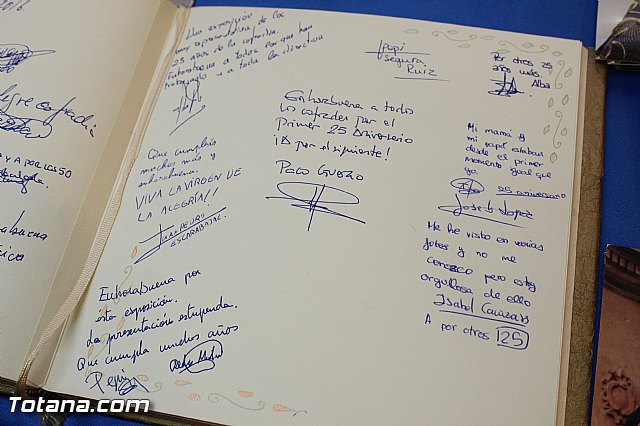 2016
y a por los 50
exposición
muy representativa de los
25 años de la cofradía.
Enhorabuena a todos los que han
trabajado y a toda la directiva
Pepi
Segura
Ruiz
Por otros 25
años más.
Alba
Enhorabuena a todos
los cofrades por el
Primer 25 Aniversario
¡A por el siguiente!
Paco Guero
Que cumpláis
muchos más y
enhorabuena.
VIVA LA VIRGEN DE
LA ALEGRÍA!!
JUAN PEDRO
ESCARABAJAL.
Mi mamá y
mi papi estaban
desde el primer
momento igual que
yo.
25 aniversario
José L. López
Me he visto en varias
fotos y no me
conozco pero estoy
orgullosa de ello
Isabel
A por otros 25
Enhorabuena por
esta exposición.
La presentación estupenda.
Que cumpla muchos años
Pepi
Totana.com